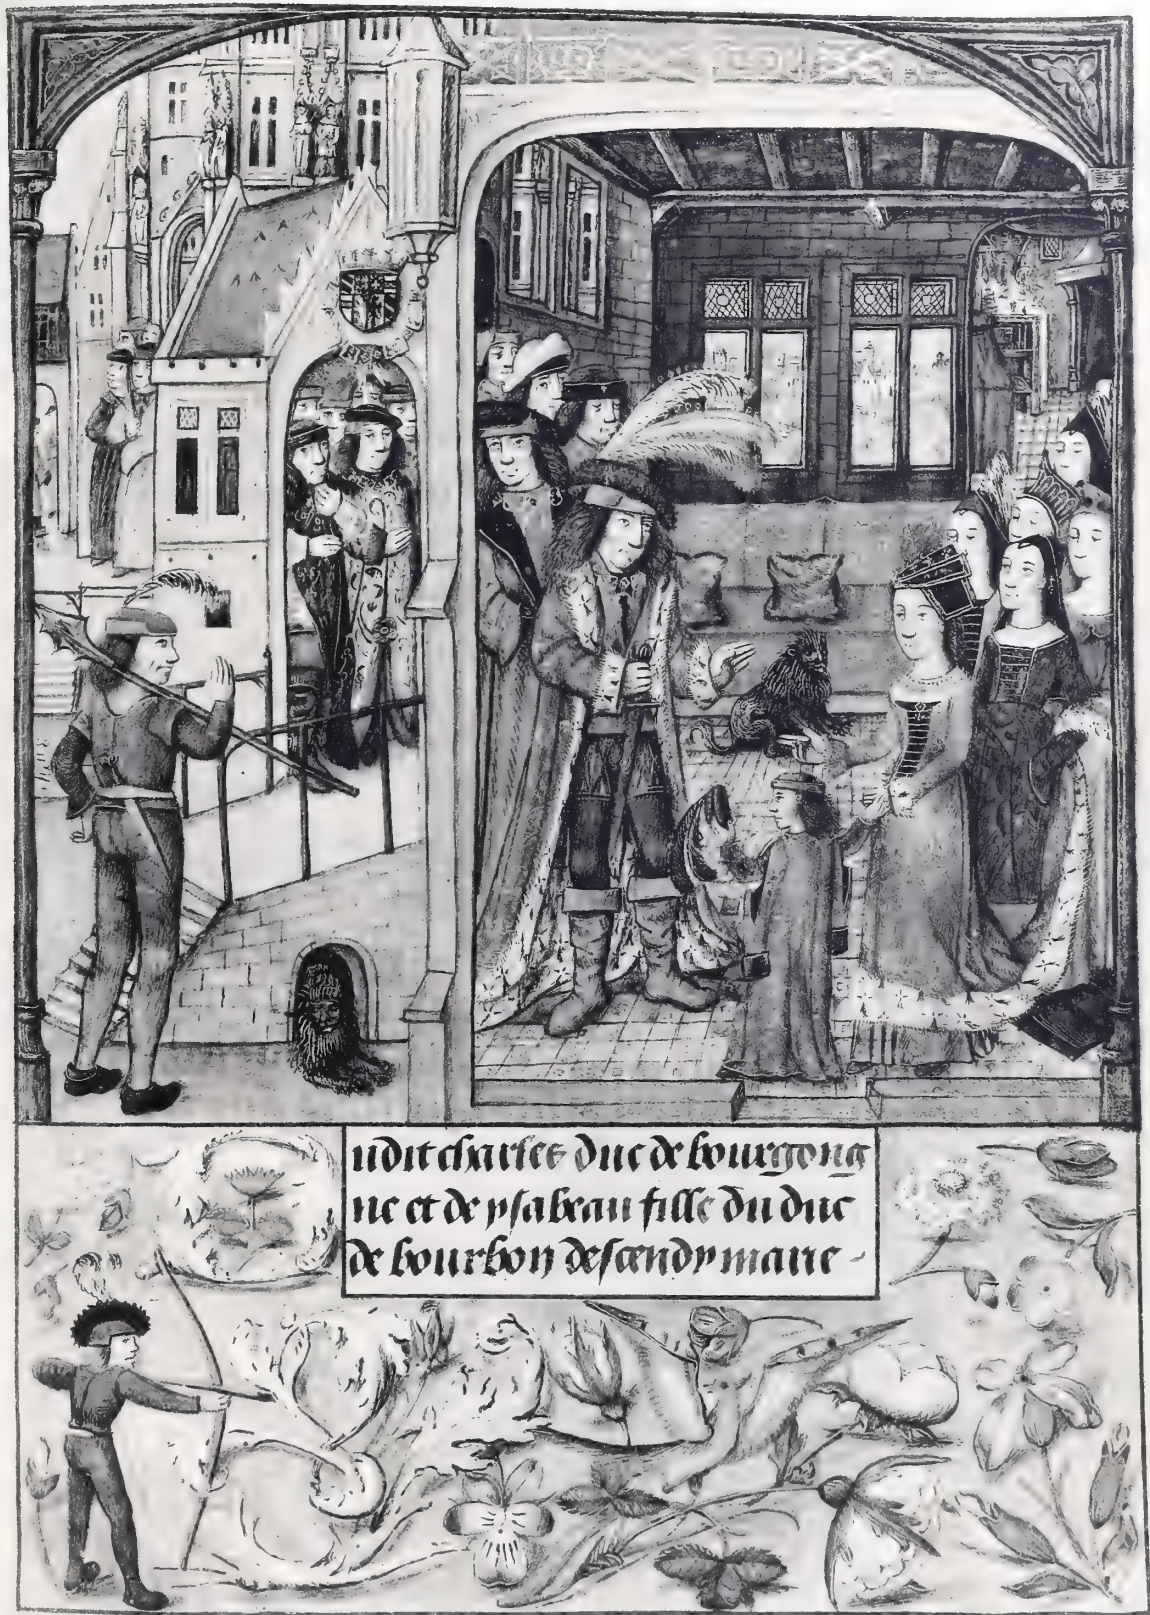 udit charles duc de bourgong
ne et de ysabeau fille du duc
de bourbon descendy marie -